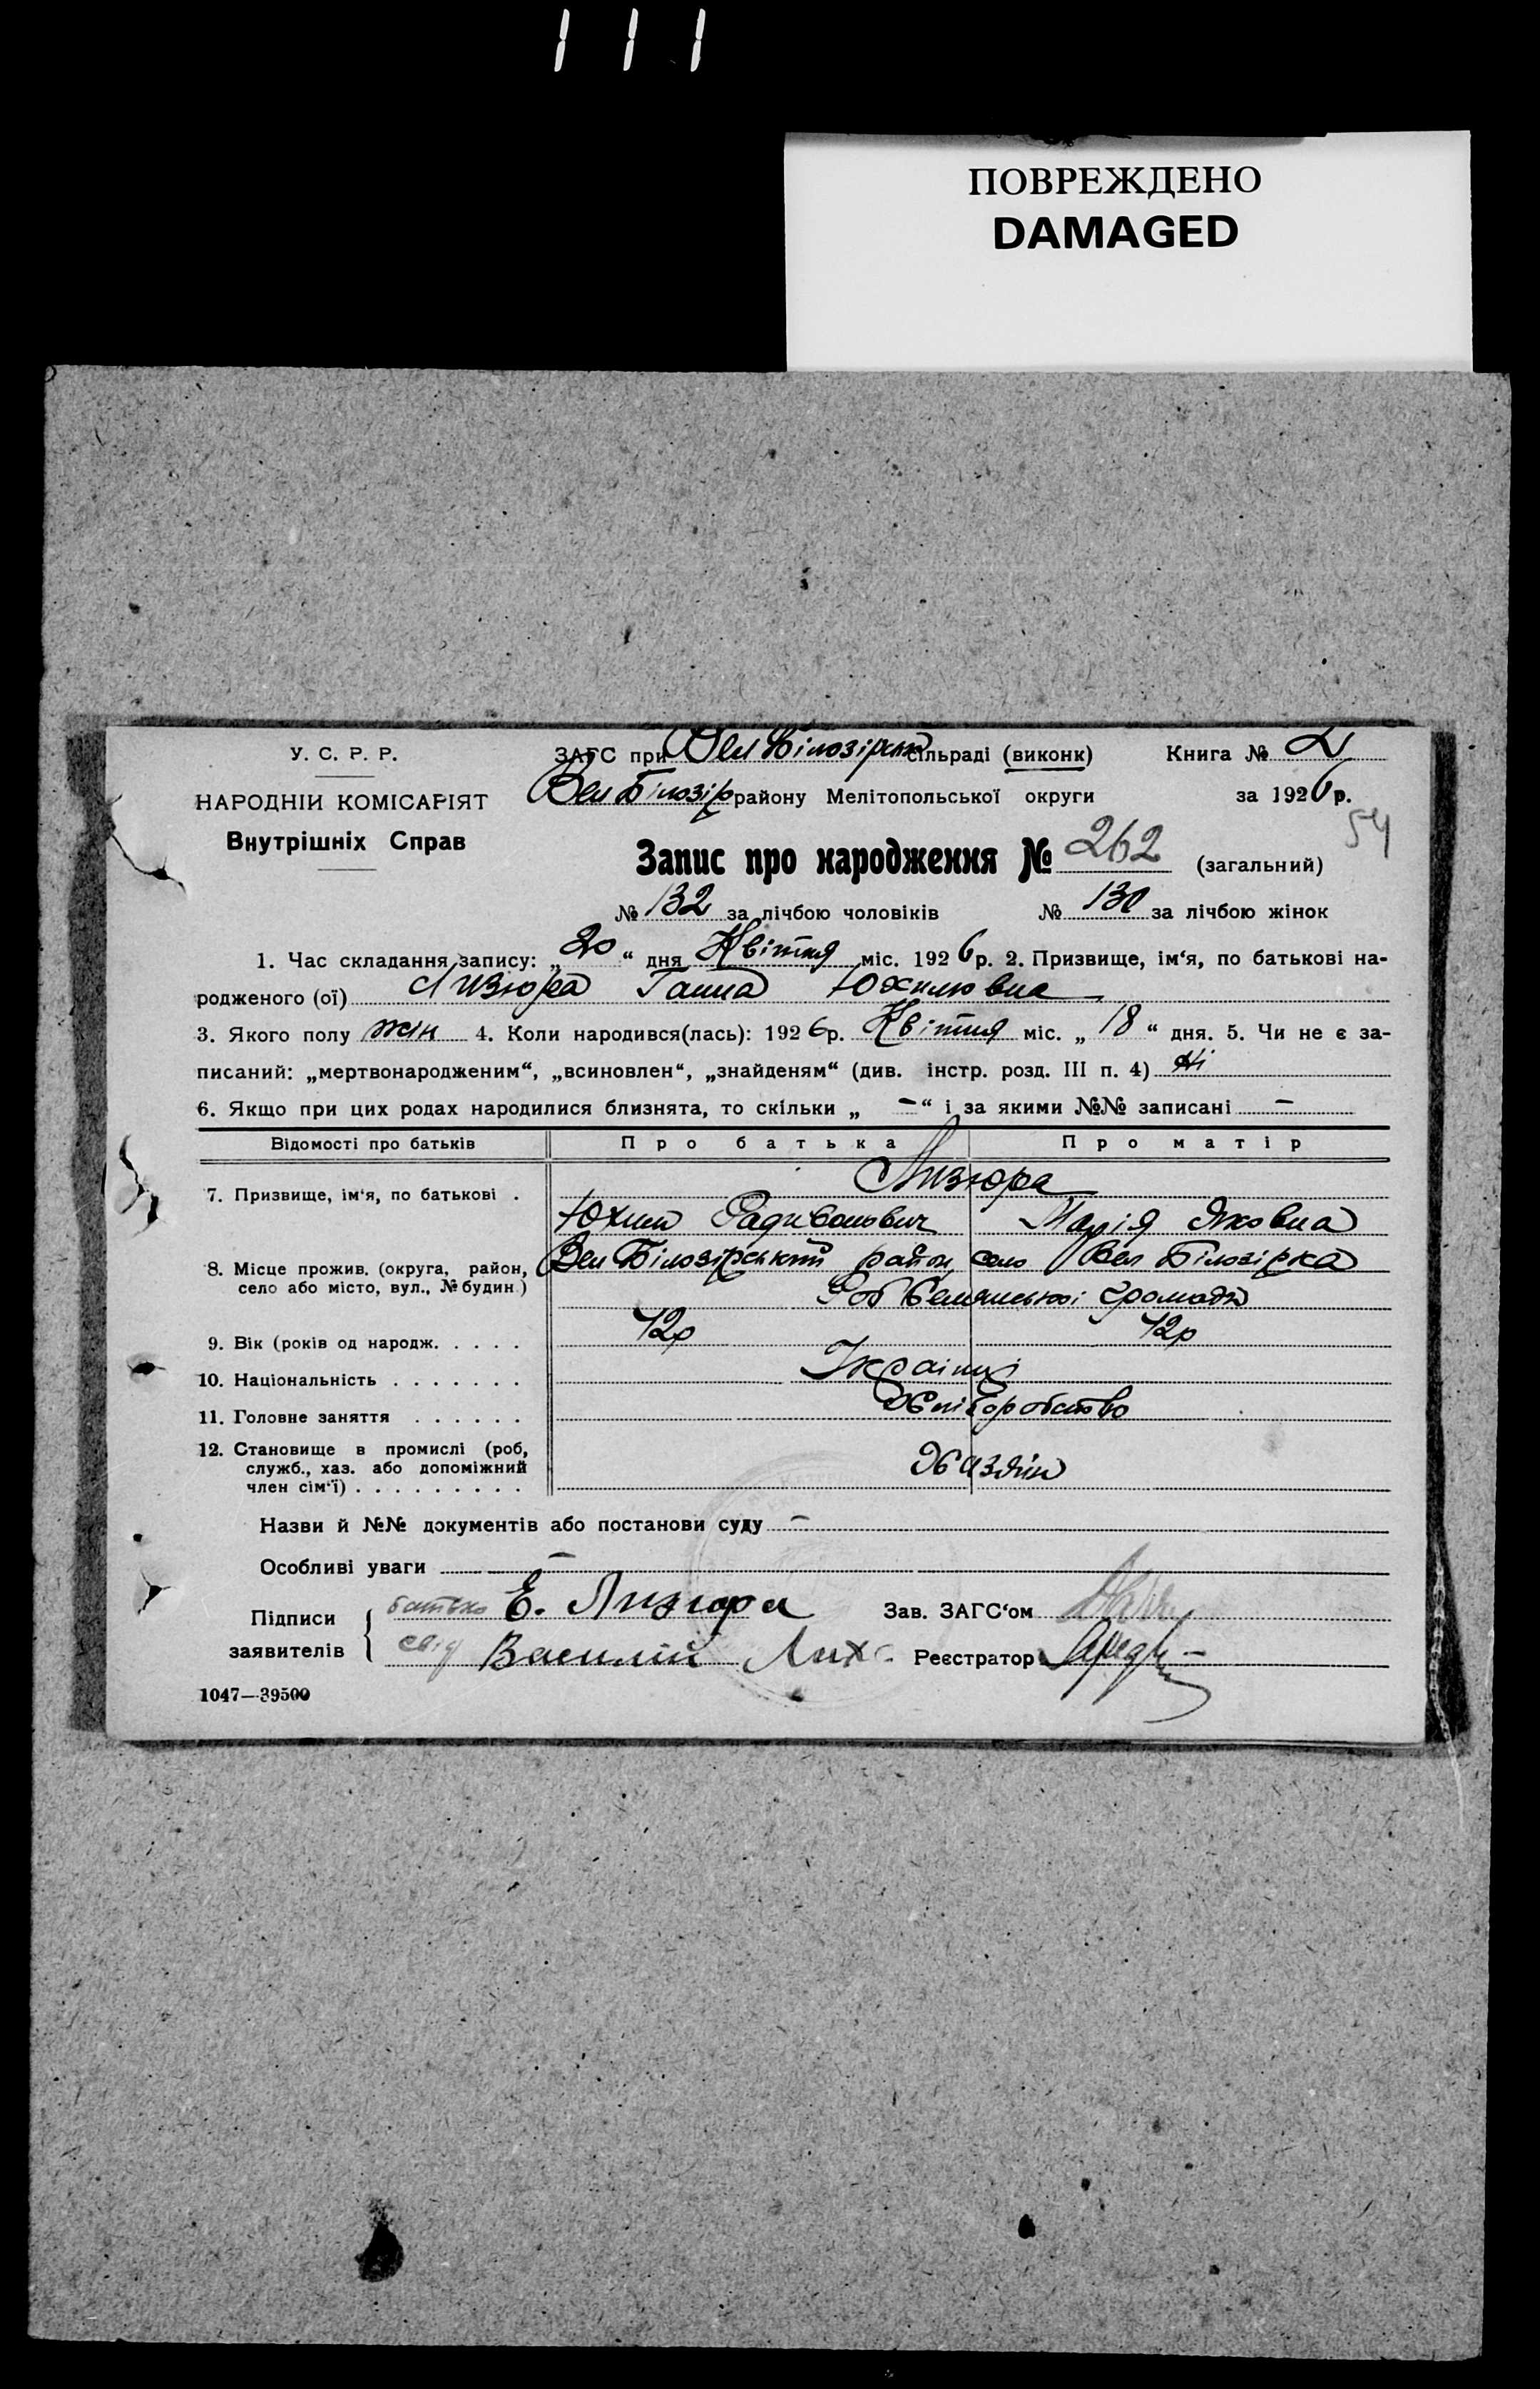 111
ПОВРЕЖДЕНО
DAMAGED
У. С. Р. Р.
ЗАГС при Вел Білозірськ сільраді (виконк) Книга №
НАРОДНІЙ КОМІСАРІЯТ
Вел Білозір району Мелітопольської округи за 1926 р.
Внутрішніх Справ
54
Запис про народження № 262 (загальний)
№ 132 за лічбою чоловіків № 130 за лічбою жінок
1. Час складання запису: „20“ дня Квітня міс. 1926 р. 2. Призвище, ім‘я, по батькові на-
родженого (ої) Лизюра Ганна Юхимовна
3. Якого полу жін 4. Коли народився(лась): 1926 р. Квітня міс. „18“ дня. 5. Чи не є за-
писаний: „мертвонародженим“, „всиновлен“, „знайденям“ (див. інстр. розд. III п. 4) Ні
6. Якщо при цих родах народилися близнята, то скільки „ – “ і за якими №№ записані –
Відомості про батьків Про батька Про матір
7. Призвище, ім‘я, по батькові . Лизюра
Юхим Радивонович Марія Яковна
8. Місце прожив. (округа, район, село або місто, вул., № будин.) Вел Білозірський район, село Вел Білозірка
громади
9. Вік (років од народж. . . . . 42р 42р
10. Національність . . . . . . . Українці
11. Головне заняття . . . . . . Хліборобство
12. Становище в промислі (роб, служб., хаз. або допоміжний член сім‘ї) . . . . . . . . . Хазяїн
Назви й №№ документів або постанови суду –
Особливі уваги –
Підписи заявителів { батько Е. Лизюра Зав. ЗАГС‘ом
свід Василий Лих Реєстратор
1047—39500